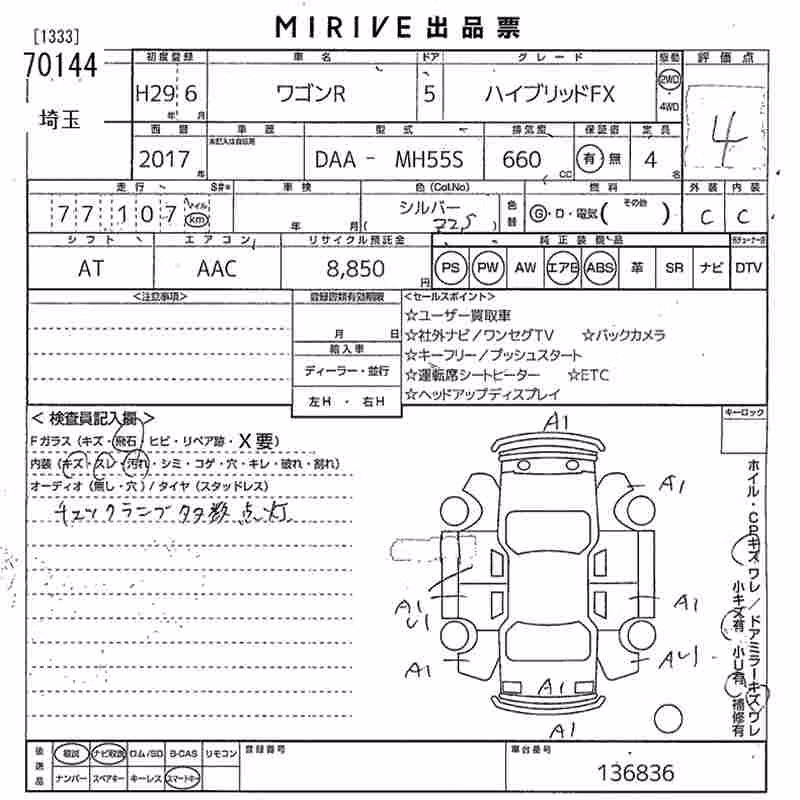 MIRIVE 出品票
[1333]
70144
埼玉
初度登録 車名 ドア グレード 駆動 評価点
H29 6 ワゴンR 5 ハイブリッドFX 2WD 4WD
年 月
4
西暦 車歴 型式 排気量 保証書 定員
2017 年 未記入は自家用 DAA - MH55S 660 CC 有 無 4 名
走行 S#* 車検 色(Cal.No) 燃料 外装 内装
77107 マイル km 年 月 シルバー ( Z2S ) 色替 G・D・電気 (その他 ) C C
シフト エアコン リサイクル預託金 純正装備品
AT AAC 8,850 円 PS PW AW エアB ABS 革 SR ナビ DTV
<注意事項> 登録書類有効期限 <セールスポイント>
月 日
輸入車
ディーラー・並行
左H ・ 右H
☆ユーザー買取車
☆社外ナビ/ワンセグTV ☆バックカメラ
☆キーフリー/プッシュスタート
☆運転席シートヒーター ☆ETC
☆ヘッドアップディスプレイ
<検査員記入欄>
Fガラス(キズ・飛石・ヒビ・リペア跡・X要)
内装(キズ・スレ・汚れ・シミ・コゲ・穴・キレ・破れ・割れ)
オーディオ(無し・穴)/タイヤ(スタッドレス)
チェックランプ多数点灯
キーロック
A1
A1
A1
U1
A1
A1
AU1
A1
A1
ホイル・CPキズ ワレ/ドアミラーキズ ワレ
小キズ有 小U有 補修有
後送品 取説 ナビ取説 ロム/SD B-CAS リモコン 登録番号 車台番号
ナンバー スペアキー キーレス スマートキー
136836